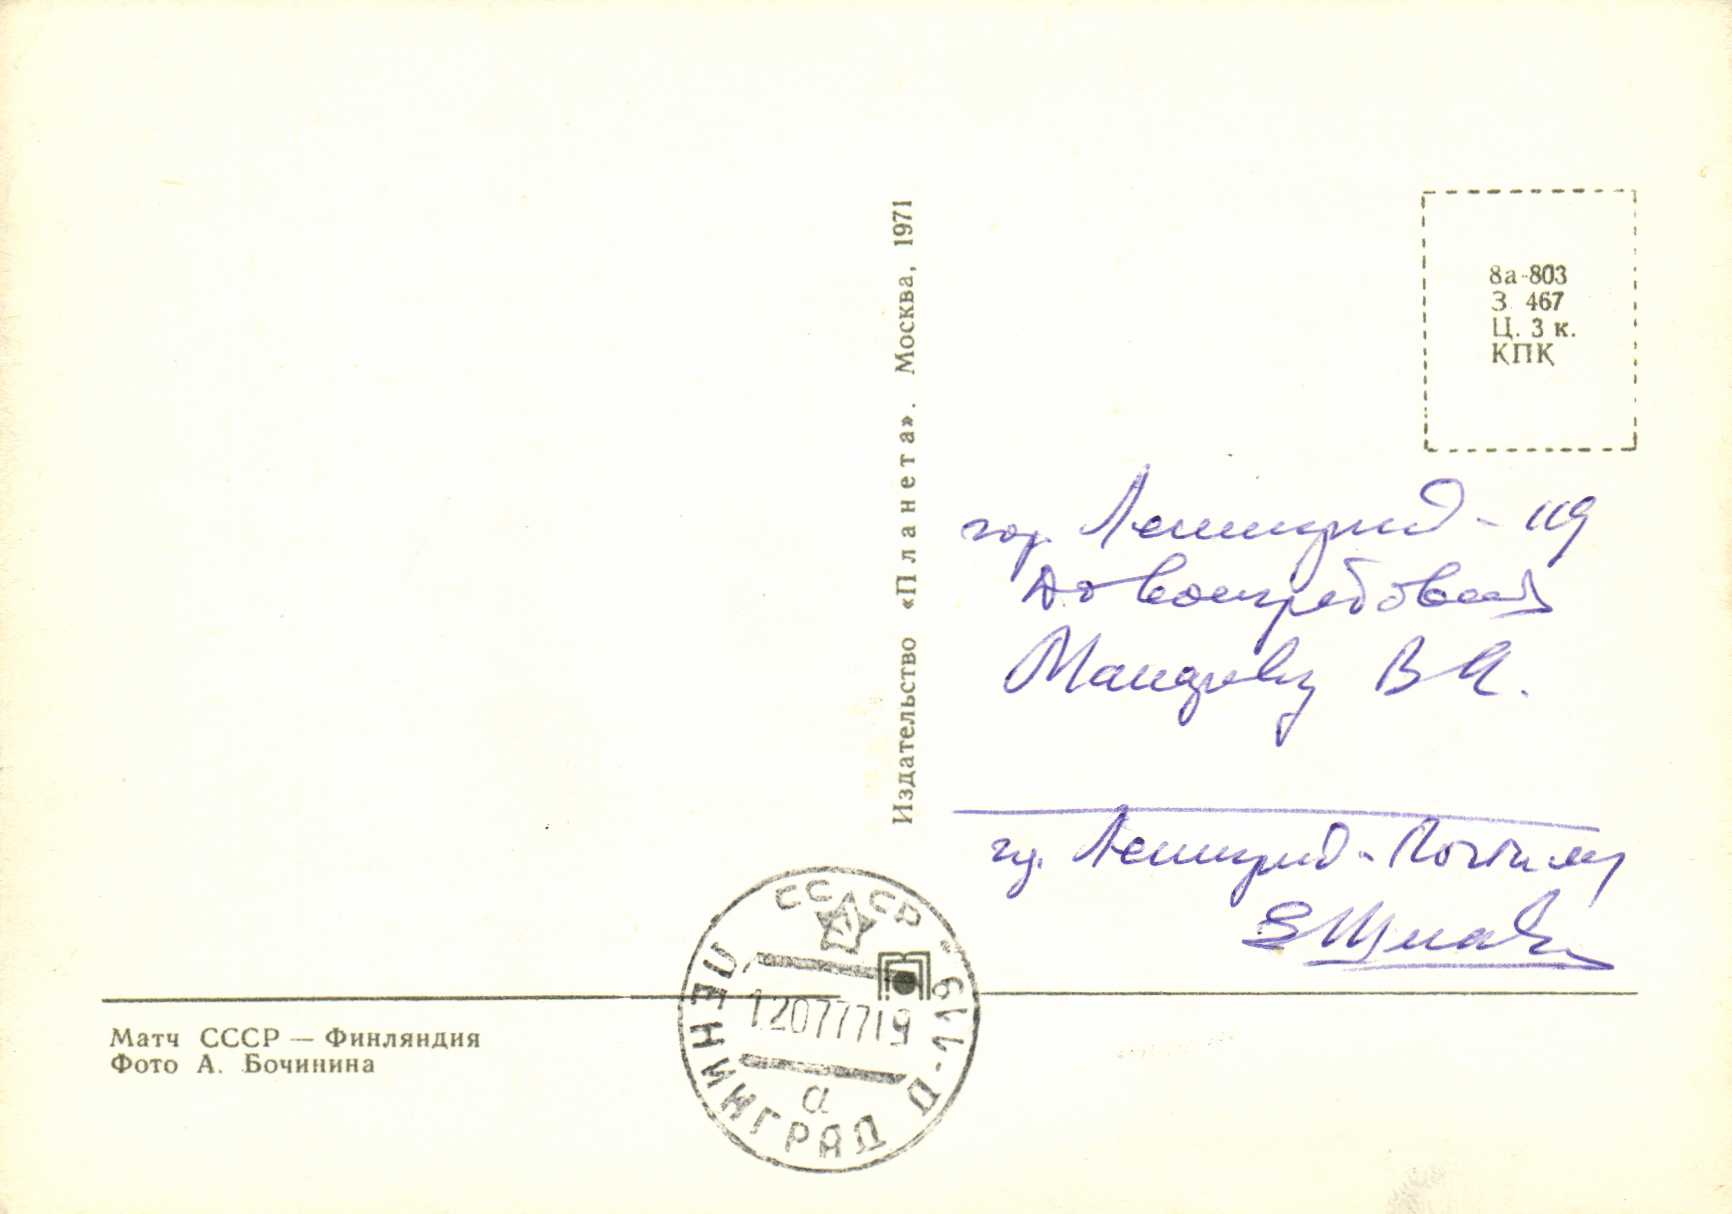 Издательство «Планета». Москва, 1971
8а-803
З. 467
Ц. 3 к.
КПК
гор. Ленинград - 119
До востребования
В И.
гор. Ленинград - Почтамт
СССР
ЛЕНИНГРАД Д-119
12077719
а
Матч СССР — Финляндия
Фото А. Бочинина